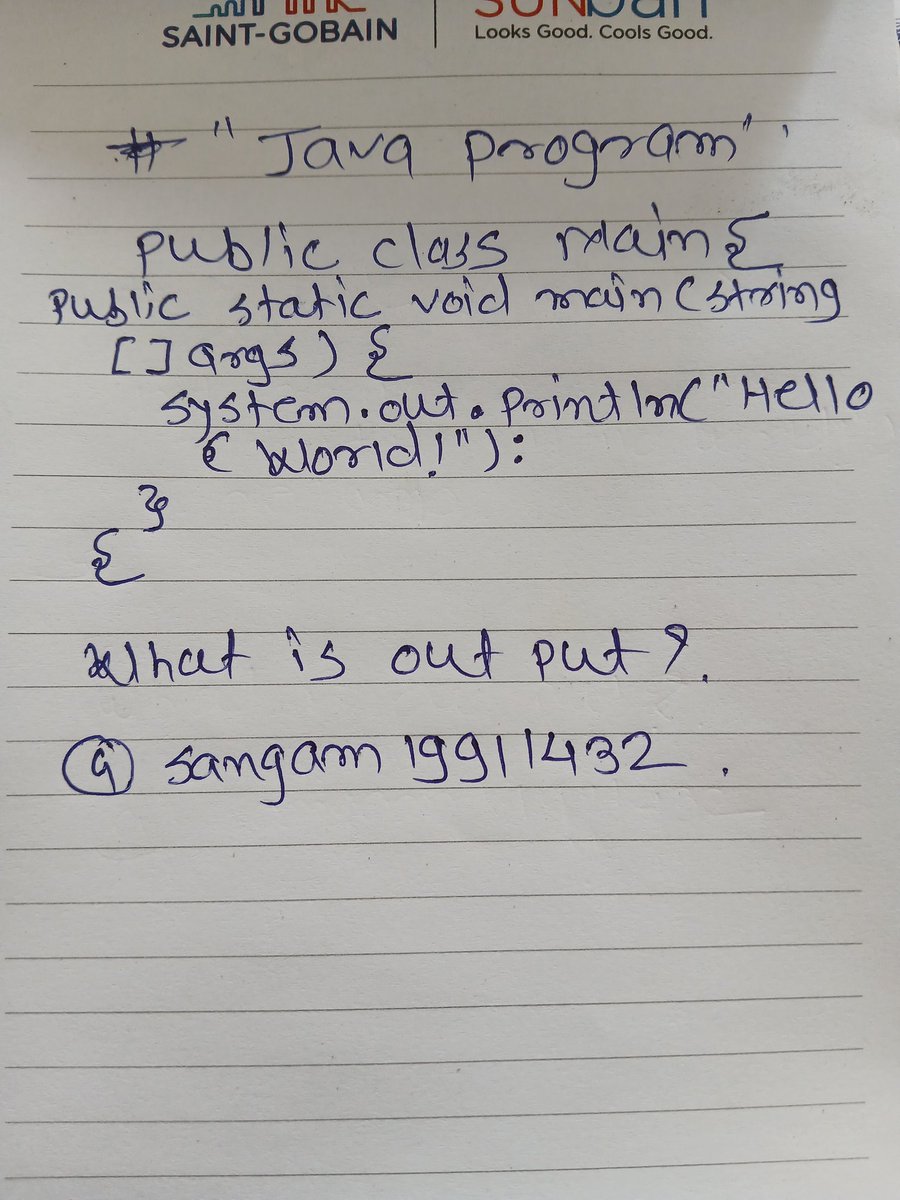 SAINT-GOBAIN
Looks Good. Cools Good.
# "Java program"
public class main {
public static void main (string
[] args) {
system.out.println("Hello
{ World!"):
}
{
What is out put?.
@ sangam 19911432.